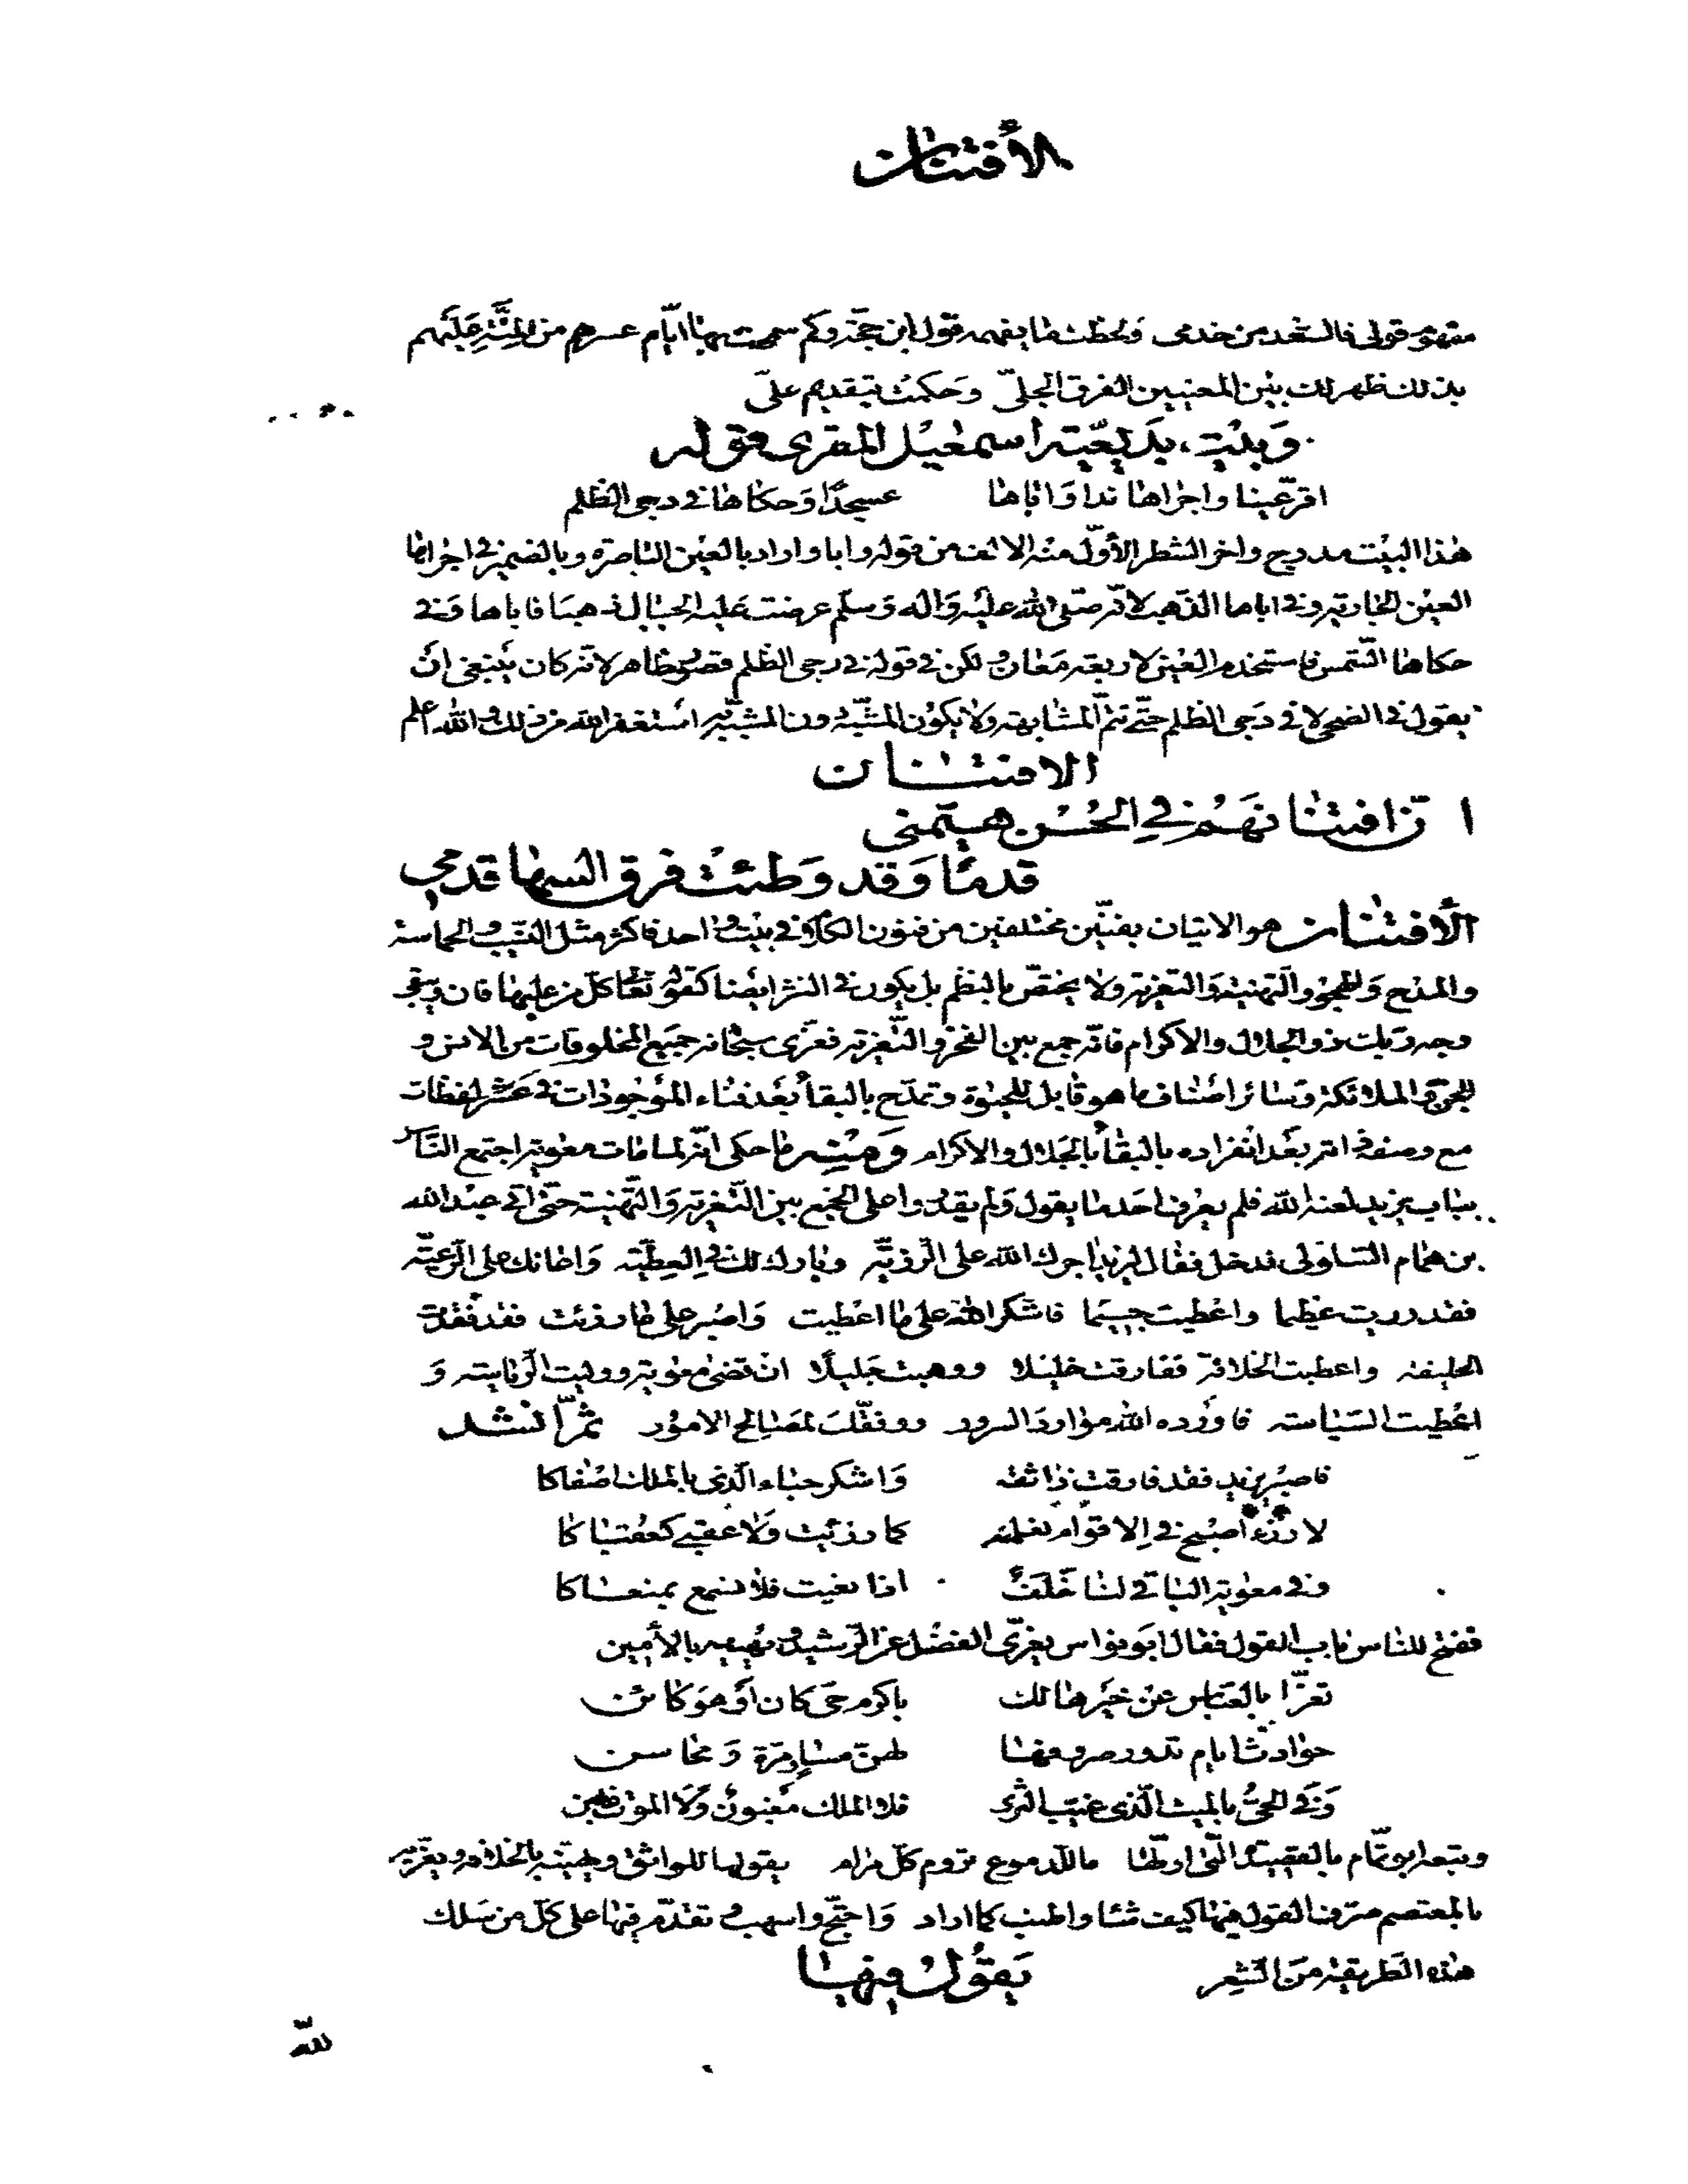 الأفتنان
مفهوم قولى فالسعد من خدمى ولحظت ما يفهمه قول ابن حجة وكم سمحت بها ايّام عسرهم من المنّة عليهم
بذلك ظهر لك بين المعنيين الفرق الجلىّ وحكمت بتقديم علىّ
وبيت بديعيّة اسمعيل المقرى قوله
اقرّ عينا واجراها ندا واباها عسجدًا وحكاها فى دجى الظلم
هذا البيت مدرج واخر الشطر الأوّل منه الالف من قوله وابا واراد بالعين الناصرة وبالضمير فى اجراها
العين الجارية وفى اباها الذهب لانّه صلى الله عليه واله وسلّم عرضت عليه الجبال ذهبا فاباها وفى
حكاها الشّمس فاستخدم العين لاربعة معان ولكن فى قوله فى دجى الظلم قصور ظاهر لانّه كان ينبغى ان
يقول فى الضحى لا فى دجى الظلم حتّى تتمّ المشابهة ولا يكون المشبّه دون المشبّه به استغفر الله من ذلك والله اعلم
الافتنان
انّ افتنانهم فى الحسن هيّمنى
قدمًا وقد وطئت فرق السها قدمى
الأفتنان هو الاتيان بفنّين مختلفين من فنون الكلام فى بيت واحد فاكثر مثل النسيب والحماسة
والمدح والهجو والتهنية والتعزية ولا يختصّ بالنظم بل يكون فى النثر ايضا كقوله تعا كلّ من عليها فان ويبقى
وجه ربك ذو الجلال والاكرام فانّه جمع بين الفخر والتعزية فعزّى سبحانه جميع المخلوقات من الانس و
الجن والملائكة وسائر اصناف ما هو قابل للحيوة وتمدّح بالبقأ بعد فناء الموجودات فى عشر لفظات
مع وصفه ذاته بعد انفراده بالبقأ بالجلال والاكرام ومنه ما حكى انّه لما مات معوية اجتمع النّاس
بباب يزيد لعنه الله فلم يعرف احد ما يقول ولم يقدروا على الجمع بين التعزية والتهنية حتى اتى عبد الله
بن همام السلولى فدخل فقال يا يزيد اجرك الله على الرّزيّة وبارك لك فى العطيّة واعانك على الرّعيّة
فقد رزيت عظيما واعطيت جسيما فاشكر الله على ما اعطيت واصبر على ما رزئت فقد فقدت
الخليفة واعطيت الخلافة ففارقت خليلا ووهبت جليلًا اذ قضى معوية ووليت الرّياسة و
اعطيت السّياسة فاورده الله موارد السرور ووفقك لصالح الامور ثمّ انشد
فاصبر يزيد فقد فارقت ذا ثقة واشكر حباء الّذى بالملك اصفاكا
لا رزء اصبح فى الاقوام نعلمه كما رزئت ولا عقبى كعقباكا
وفى معوية الباقى لنا خلف اذا نعيت فلا نسمع بمنعاكا
ففتح للناس باب القول فقال ابو نواس يعزّى الفضل عن الرّشيد ويهنيه بالأمين
تعزّ ابا العباس عن خير هالك باكرم حى كان أو هو كائن
حوادث ايام تدور صروفها لهنّ مساو مرة ومحاسن
وفى الحىّ بالميت الّذى غيّب الثرى فلا الملك مغبون ولا الموت غابن
وتبعه ابو تمّام بالقصيدة التى اولها ما للدموع تروم كلّ مرام يقولها للواثق ويهنيه بالخلافة ويعزّيه
بالمعتصم صرّف القول فيها كيف شا واطنب كما اراد واحتجّ واسهب وتقدّم فيها على كلّ من سلك
هذه الطريقة من الشعر يقول فيها
لله